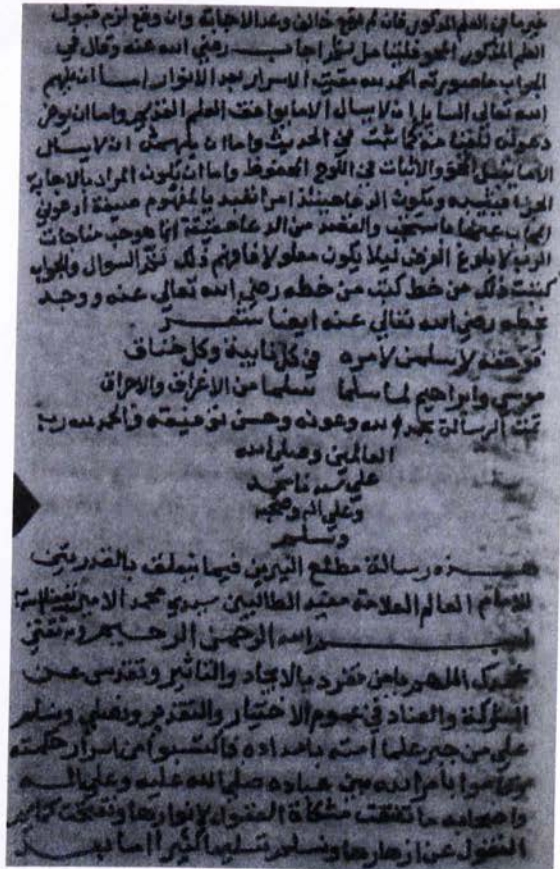 غيرما في العلم المذكور فان لم يقع خالف وعد الاجابة وان وقع لزم قبول
العلم المذكور المحو فلتتأمل ينظر اجاب رضي الله عنه وقال في
الجواب ما صورته الحمد لله مفيض الاسرار بعد الانوار اما ان يلهم
الله تعالى السايل ان لا يسال الا ما يوافق العلم القديم واما ان يوخر
دعوته كما ثبت في الحديث واما ان يلهمه ان لا يسال
الا ما يقبل المحو والاثبات في اللوح المحفوظ واما ان يكون المراد بالاجابة
الجواب ويكون الدعا حينئذ امرا
والمقصد من الدعا انما هو مناجات
الرب لا بلوغ الغرض ليلا يكون معلولا فافهم ذلك تقرر السوال والجواب
كتبت ذلك من خط كتب من خطه رضي الله تعالى عنه ووجد
بخطه رضي الله تعالى عنه ايضا شعر
لامره في كل نايبة وكل خناق
موسى وابراهيم لما سلما سلما من الاغراق والاحراق
تمت الرسالة بحمد الله وعونه وحسن توفيقه والحمد لله رب
العالمين وصلى الله
على سيدنا محمد
وعلى اله وصحبه
وسلم
هذه رسالة مطلع النيرين فيما يتعلق بالقدرتين
للامام العالم العلامة مفيد الطالبين سيدي محمد الامير
بسم الله الرحمن الرحيم وبه ثقتي
نحمدك اللهم يا من تفرد بالايجاد والتاثير وتقدس عن
الشركة والعناد في عموم الاختيار والتقدير ونصلي ونسلم
على من جبر علما امته بامداده فاكتسبوا من اسرار حكمته
وقاموا بامر الله بين عباده صلى الله عليه وعلى اله
واصحابه ما تفتقت مشكاة العقول لانوارها وتفتحت
العقول عن ازهارها وسلم تسليما كثيرا اما بعد